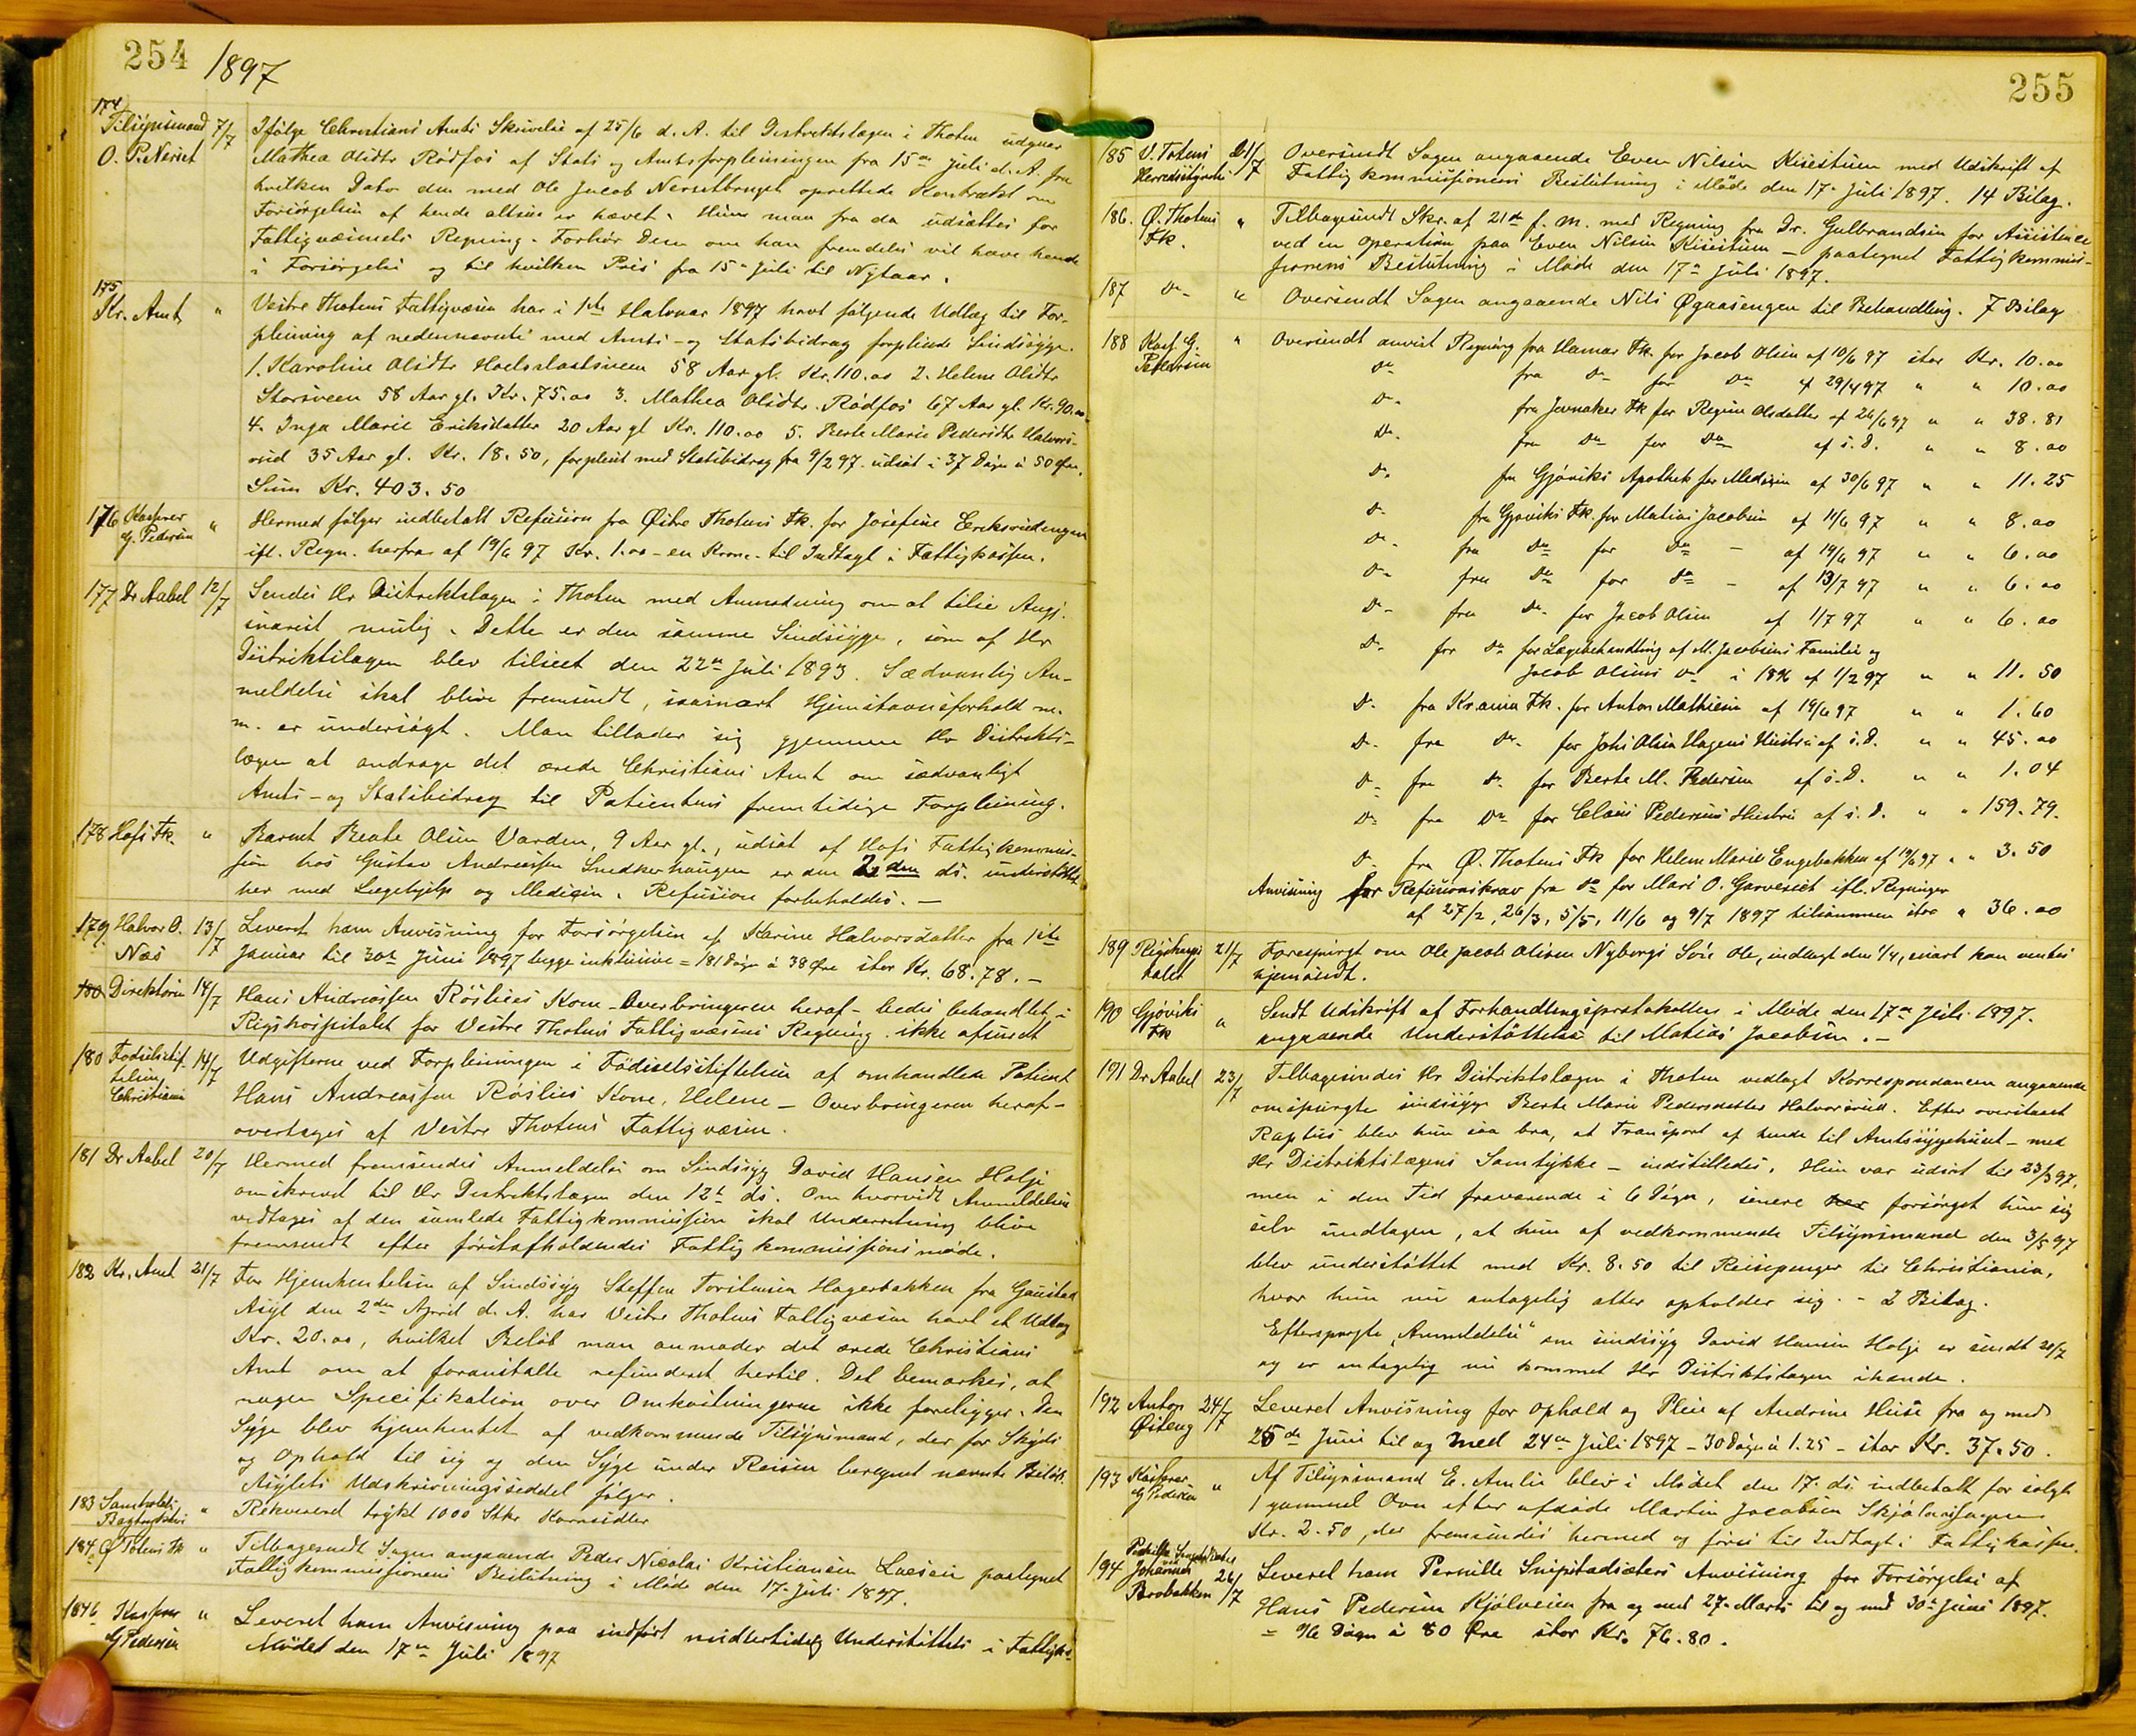 254 1897
174
Tilsynsmand 7/7 Ifølge Christians Amts Skrivelse af 25/6 d. A. til Distriktslægen i Thoten udgaar
O. P. Nerset Mathea Olsdtr Rødfos af Stats og Amtsforpleiningen fra 15de Juli d. A. fra
hvilken Dato den med Ole Jacob Nersetbraget oprettede Kontrakt om
Forsørgelsen af hende altsaa er hævet. Hun maa fra da udsættes for
Fattigvæsenets Regning. Forhør Dem om han fremdeles vil have hende
i Forsørgelse og til hvilken Pris fra 15de Juli til Nytaar.
175
Kr. Amt " Vestre Thotens Fattigvæsen har i 1ste Halvaar 1897 havt følgende Udlæg til For-
pleining af nedennævnte med Amts- og Statsbidrag forpleiede Sindssyge.
1. Karoline Olsdtr 58 Aar gl. Kr. 110.00 2. Helene Olsdtr
Storsveen 58 Aar gl. Kr. 75.00 3. Mathea Olsdtr. Rødfos 67 Aar gl. Kr. 90.00
4. Inga Marie Eriksdatter 20 Aar gl Kr. 110.00 5. Berte Marie Pedersdtr Halvors-
rud 35 Aar gl. Kr. 18.50, forpleiet med Statsbidrag fra 9/2 97. udsat i 37 Døgn à 50 Øre.
Sum Kr. 403.50
176 Kasserer " Hermed følger indbetalt Refusion fra Østre Thotens Fk. for Josefine Eriksrudengen
G. Pedersen ifl. Regn. herfra af 19/6 97 Kr. 1.00 - en Krone - til Indtægt i Fattigkassen.
177 Dr Aabel 12/7 Sendes Hr Distriktslægen i Thoten med Anmodning om at tilse Angj.
snarest mulig. Dette er den samme Sindssyge, som af Hr
Distriktslægen blev tilseet den 22de Juli 1893. Sædvanlig An-
meldelse skal blive fremsendt, saasnart Hjemstavnsforhold m.
m. er undersøgt. Man tillader sig gjennem Hr Distrikts-
lægen at andrage det ærede Christians Amt om sædvanligt
Amts- og Statsbidrag til Patientens fremtidige Forpleining.
178 Hofs Fk. " Barnet Beate Olsen Varden, 9 Aar gl., udsat af Hofs Fattigkommis-
sion hos Gustav Andreassen Snedkerhaugen er den 2den ds. understøttet
her med Lægehjelp og Medicin. Refusion forbeholdes. —
179. Halvor O. 13/7 Leveret ham Anvisning for Forsørgelsen af Karine Halvorsdatter fra 1ste
Næs Januar til 30te Juni 1897 begge inklusive = 181 Døgn à 38 Øre stor Kr. 68.78. —
180 Direktøren 14/7 Hans Andreassen Røslies Kone - Overbringeren heraf - bedes behandlet i
Rigshospitalet for Vestre Thotens Fattigvæsens Regning. ikke afsendt
180 Fødselsstif- 14/7 Udgifterne ved Forpleiningen i Fødselsstiftelsen af omhandlede Patient
telsen Hans Andreassen Røslies Kone, Helene - Overbringeren heraf -
Christiania overtages af Vestre Thotens Fattigvæsen.
181 Dr Aabel 20/7 Hermed fremsendes Anmeldelse om Sindssyg David Hansen Holje
omskrevet til Hr Distriktslægen den 12te ds. Om hvorvidt Anmeldelsen
vedtages af den samlede Fattigkommission skal Underretning blive
fremsendt efter førstafholdendes Fattigkommissionsmøde.
182 Kr. Amt 21/7 For Hjemhentelsen af Sindssyg Steffen Torstensen Hagerbakken fra Gaustad
Asyl den 2den April d. A. har Vestre Thotens Fattigvæsen havt et Udlæg
Kr. 20.00, hvilket Beløb man anmoder det ærede Christians
Amt om at foranstalte refunderet hertil. Det bemærkes, at
nogen Specifikation over Omkostningerne ikke foreligger. Den
Syge blev hjemhentet af vedkommende Tilsynsmand, der for Skyds
og Ophold til sig og den Syge under Reisen beregnet nævnte Beløb.
Asylets Udskrivningsseddel følger.
183 Samholds " Rekvireret trykt 1000 Stkr Kornsedler
Bogtrykkeri
184. Ø Totens Fk " Tilbagesendt Sagen angaaende Peder Nicolai Kristiansen Laesen paategnet
Fattigkommissionens Beslutning i Møde den 17de Juli 1897.
184b Kasserer " Leveret ham Anvisning paa indført midlertidig Understøttelse i Fattigk.
G Pedersen Mødet den 17de Juli 1897
255
185 V. Totens 21/7 Oversendt Sagen angaaende Even Nilsen Kisestuen med Udskrift af
Herredsstyrelse Fattigkommissionens Beslutning i Møde den 17de Juli 1897. 14 Bilag.
186. Ø. Thotens " Tilbagesendt Skr. af 21de f. m. med Regning fra Dr. Gulbrandsen for Assistence
Fk. ved en operation paa Even Nilsen Kisestuen - paategnet Fattigkommis-
sionens Beslutning i Møde den 17de Juli 1897.
187 do- " Oversendt Sagen angaaende Nils Øgaasengen til Behandling. 7 Bilag
188 Kass. G. " Oversendt anvist Regning fra Hamar Fk. for Jacob Olsen af 10/6 97 stor Kr. 10.00
Pedersen do fra do for do af 29/4 97 " " 10.00
do. fra Jevnaker Fk for Regine Olsdatter af 26/6 97 " " 38.81
do. fra do for do af s. D. " " 8.00
do. fra Gjøviks Apothek for Medicin af 30/6 97 " " 11.25
do. fra Gjøviks Fk. for Matias Jacobsen af 11/6 97 " " 8.00
do. fra do for do - af 19/6 97 " " 6.00
do fra do for do - af 13/7 97 " " 6.00
do. fra do. for Jacob Olsen af 1/7 97 " " 6.00
do. for do for Lægebehandling af M. Jacobsens Familie og
Jacob Olsens do i 1896 af 1/2 97 " " 11.50
do. fra Kr.ania Fk. for Anton Mathiesen af 19/6 97 " " 1.60
do. fra do. for Johs Olsen Hagens Hustru af s. D. " " 45.00
do. fra do. for Berte M. Pedersen af s. D. " " 1.04
do. fra do for Claus Pedersens Hustru af s. D. " " 159.79.
do. fra Ø. Thotens Fk for Helene Marie Engebakken af 19/6 97 " " 3.50
Anvisning for Refusionskrav fra do for Mari O. Garveriet ifl. Regninger
af 27/2, 26/3, 5/5, 11/6 og 9/7 1897 tilsammen stor " 36.00
189 Rigshospi- 21/7 Forespurgt om Ole Jacob Olsen Nyborgs Søn Ole, indlagt den 1/4, snart kan ventes
talet hjemsendt.
190 Gjøviks " Sendt Udskrift af Forhandlingsprotokollen i Møde den 17de Juli 1897.
Fk angaaende Understøttelse til Matias Jacobsen. —
191 Dr Aabel 23/7 Tilbagesendes Hr Distriktslægen i Thoten vedlagt Korrespondancen angaaende
omspurgte sindssyge Berte Marie Pedersdatter Halvorsrud. Efter overstaaet
Raptus blev hun saa bra, at Transport af hende til Amtssygehuset - med
Hr Distriktslægens Samtykke - indstilledes. Hun var udsat til 23/3 97,
men i den Tid fraværende i 6 Døgn, senere har forsørget hun sig
selv undtagen, at hun af vedkommende Tilsynsmand den 3/5 97
blev understøttet med Kr. 8.50 til Reisepenger til Christiania,
hvor hun nu antagelig atter opholder sig. - 2 Bilag.
Efterspurgte „Anmeldelse“ om sindssyg David Hansen Holje er sendt 20/7
og er antagelig nu kommet Hr Distriktslægen ihænde.
192 Anton 24/7 Leveret Anvisning for Ophold og Pleie af Andrine Huse fra og med
Østeng 25de Juni til og med 24de Juli 1897 - 30 Døgn à 1.25 - stor Kr. 37.50.
193 Kasserer " Af Tilsynsmand E. Amlie blev i Mødet den 17. ds indbetalt for solgt
G Pedersen 1 gammel Ovn efter afdøde Martin Jacobsen
Kr. 2.50, der fremsendes hermed og føres til Indtægt i Fattigkassen.
194 Johannes 26/7 Leveret ham Pernille Snipstadsæters Anvisning for Forsørgelse af
Brobakken Hans Pedersen Kjølveien fra og med 27. Marts til og med 30te Juni 1897.
= 96 Døgn à 80 Øre stor Kr. 76.80.